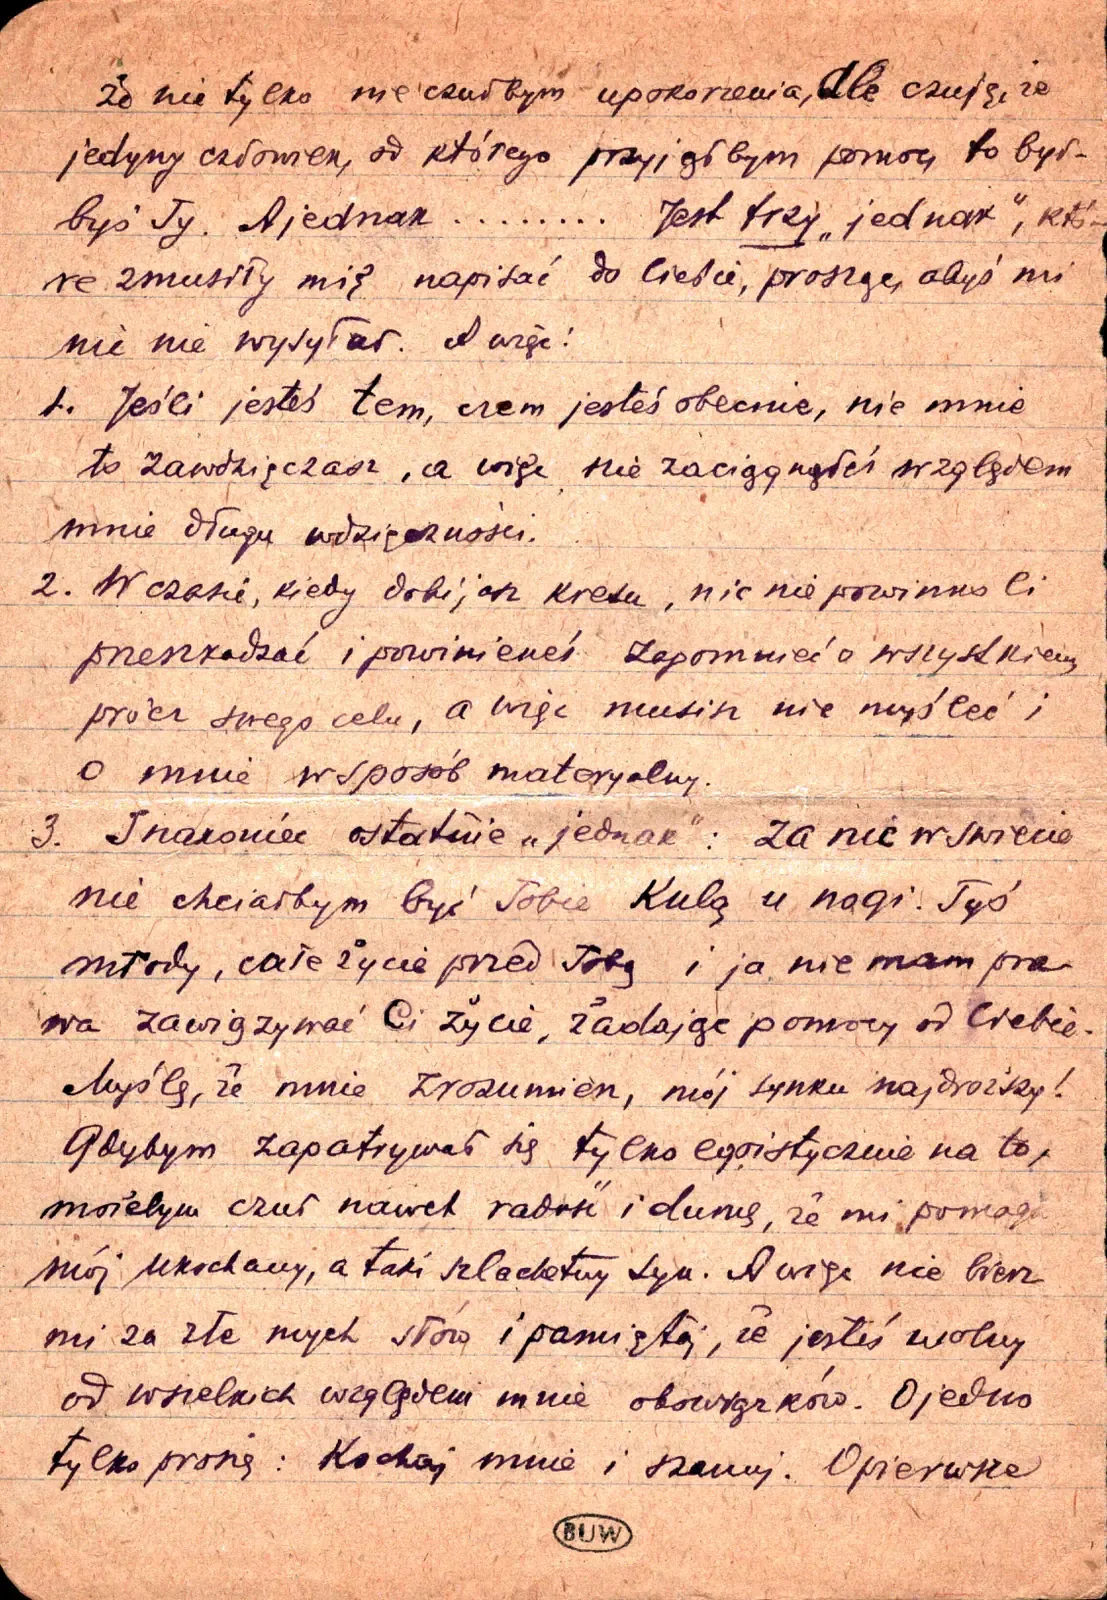 że nie tylko nie czułbym upokorzenia, ale czuję, że
jedyny człowiek, od którego przyjąłbym pomoc, to był-
byś Ty. A jednak ......... Jest trzy „jednak", któ-
re zmusiły mię napisać do Ciebie, proszę, abyś mi
nic nie wysyłał. A więc:
1. Jeśli jesteś tem, czem jesteś obecnie, nie mnie
to zawdzięczasz, a więc nie zaciągnąłeś względem
mnie długu wdzięczności.
2. W czasie, kiedy dobijasz kresu, nic nie powinno Ci
przeszkadzać i powinieneś zapomnieć o wszystkiem,
prócz swego celu, a więc musisz nie myśleć i
o mnie w sposób materyalny.
3. I nakoniec ostatnie „jednak": za nic w świecie
nie chciałbym być Tobie Kulą u nogi. Tyś
młody, całe życie przed Tobą i ja nie mam pra-
wa zawiązywać Ci życie, żądając pomocy od Ciebie.
Myślę, że mnie zrozumiesz, mój synku najdroższy!
Gdybym zapatrywał się tylko egoistycznie na to,
możebym czuł nawet radość i dumę, że mi pomaga
mój ukochany, a taki szlachetny syn. A więc nie bierz
mi za złe mych słów i pamiętaj, że jesteś wolny
od wszelkich względem mnie obowiązków. O jedno
tylko proszę: Kochaj mnie i szanuj. O pierwsze
BUW